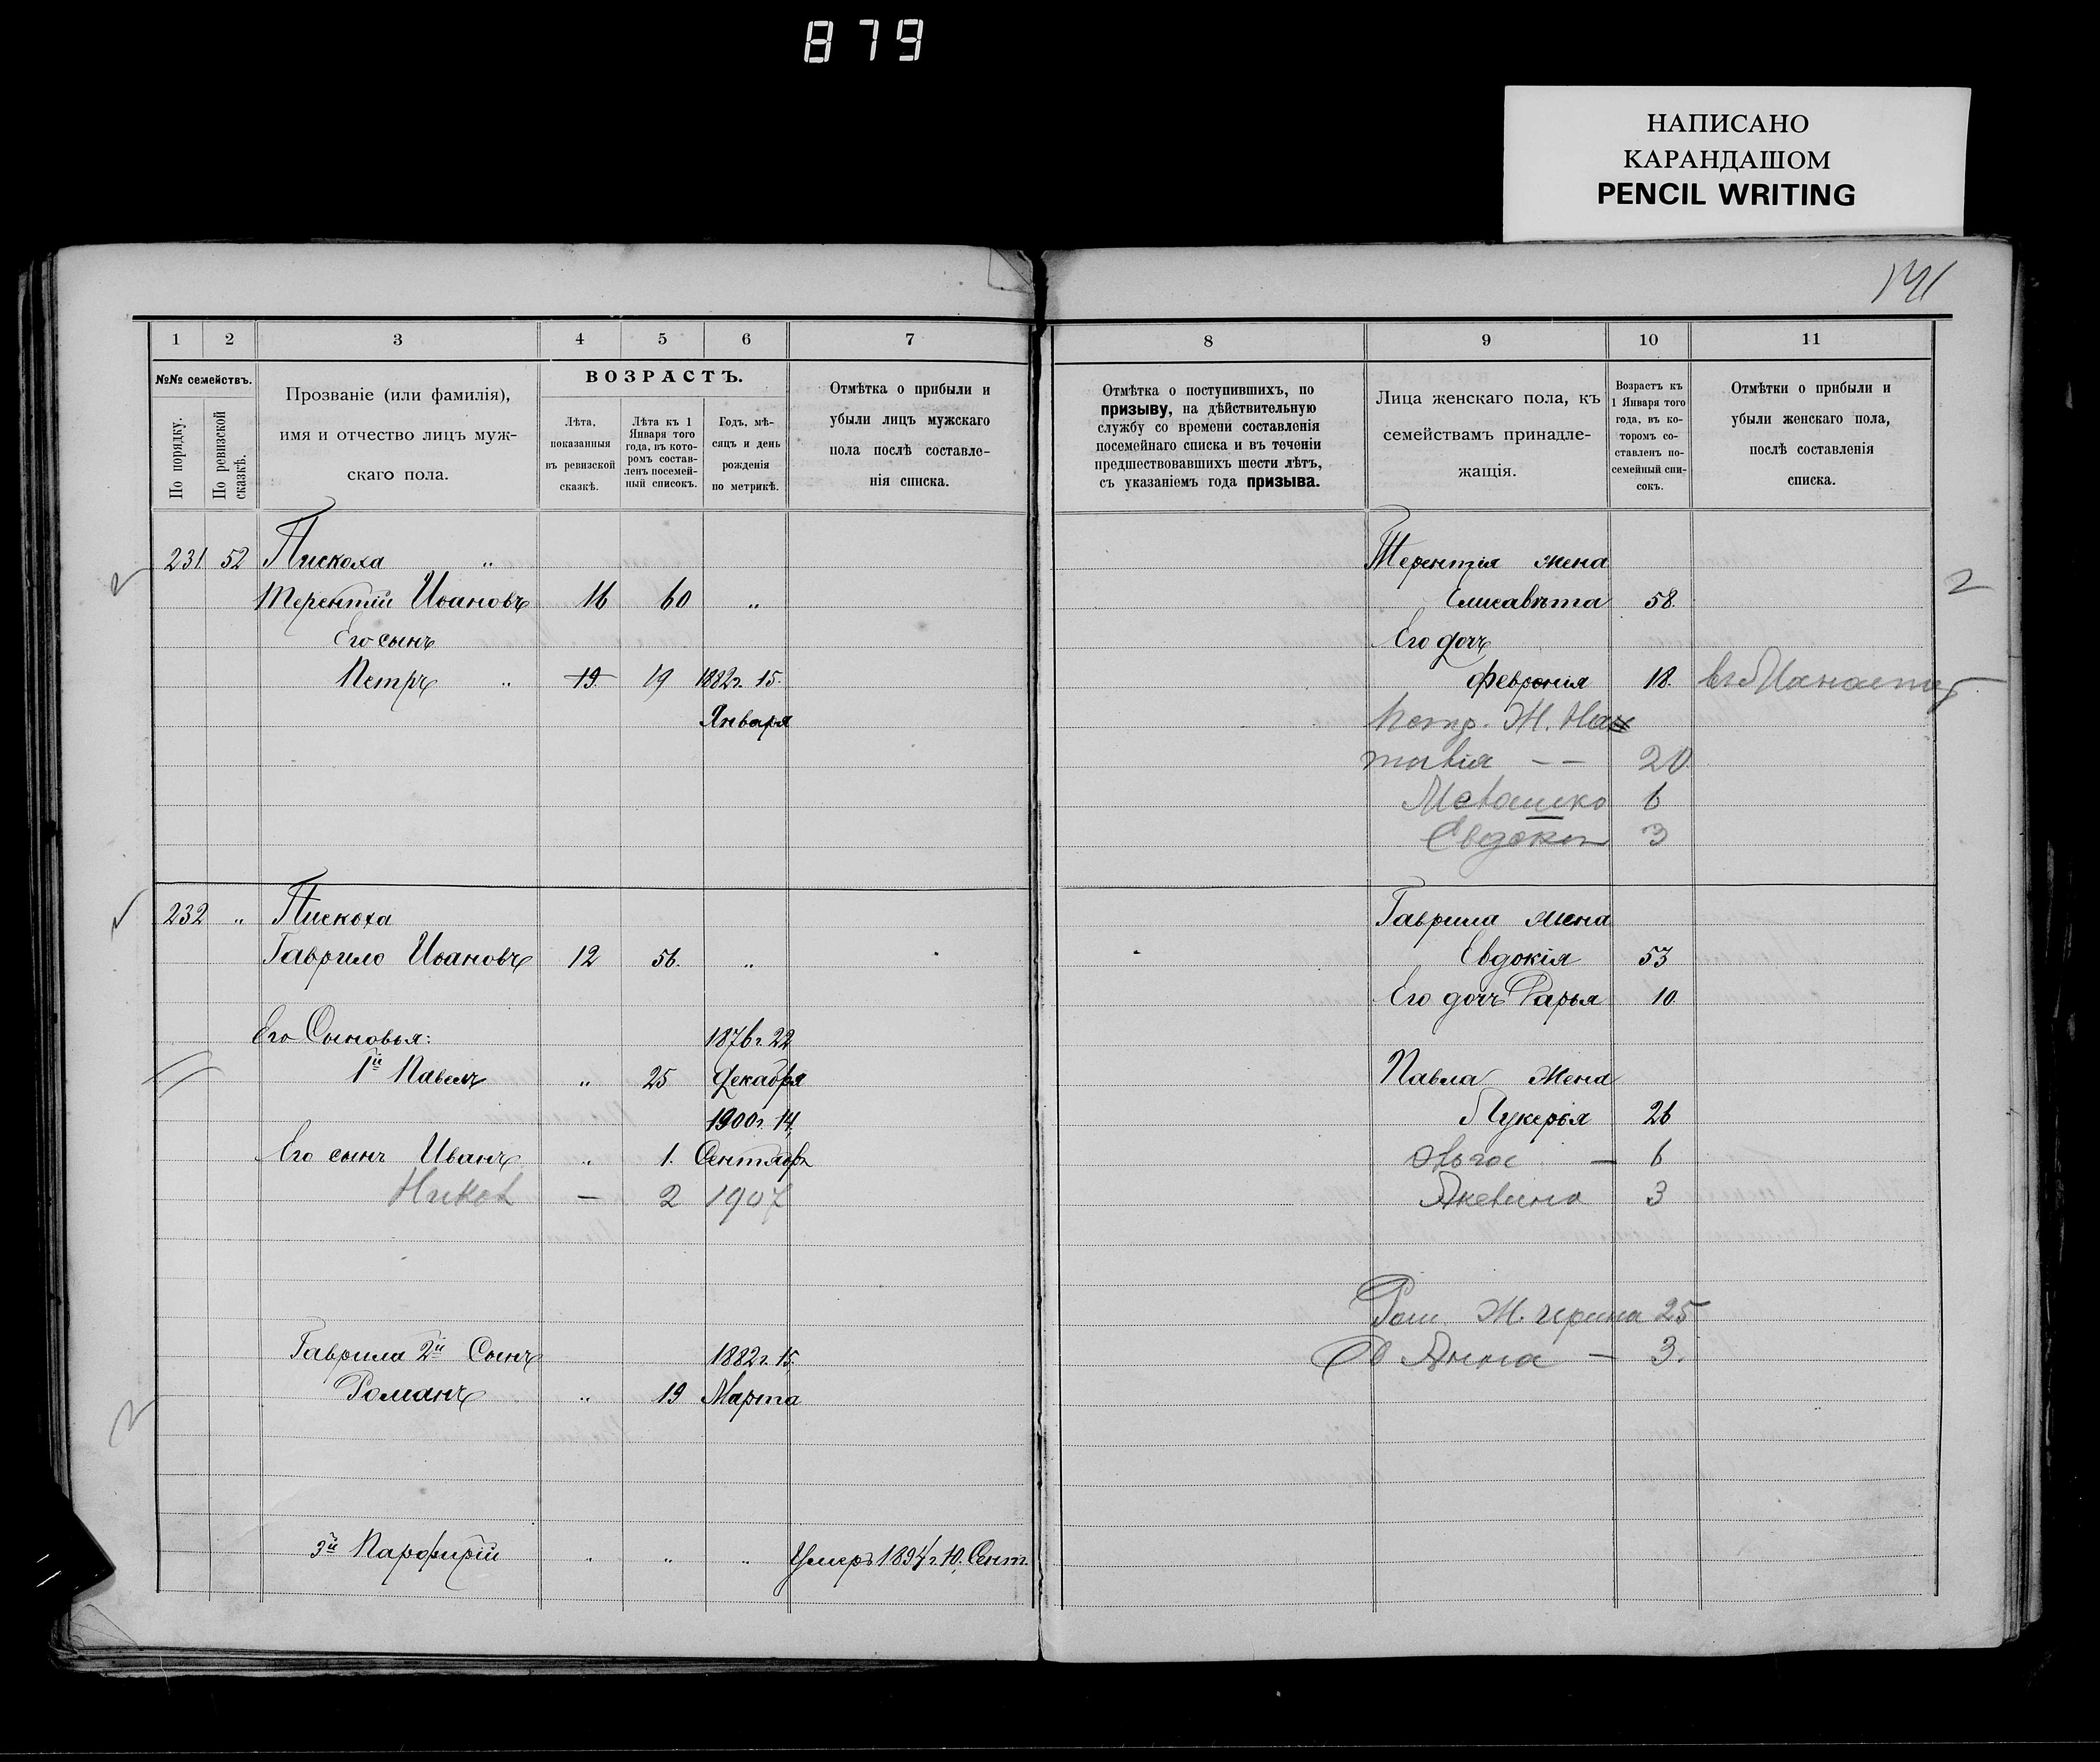 879
НАПИСАНО
КАРАНДАШОМ
PENCIL WRITING
141
1 2 3 4 5 6 7
№№ семействъ.
По порядку.
По ревизской сказкѣ.
Прозваніе (или фамилія),
имя и отчество лицъ муж-
скаго пола.
ВОЗРАСТЪ.
Лѣта,
показанныя
въ ревизской
сказкѣ.
Лѣта къ 1
Января того
года, въ кото-
ромъ состав-
ленъ посемей-
ный списокъ.
Годъ, мѣ-
сяцъ и день
рожденія
по метрикѣ.
Отмѣтка о прибыли и
убыли лицъ мужскаго
пола послѣ составле-
нія списка.
231 52 Пискоха "
Терентій Ивановъ 16 60 "
Его сынъ
Петръ " 19 19 1882г. 15.
Января
232 " Пискоха
Гаврило Ивановъ 12 56. "
Его Сыновья: 1876г. 22
1й Павелъ " 25 Декабря
1900г. 14.
Его сынъ Иванъ " 1. Сентябр
— 2 1907
Гаврила 2й Сынъ 1882г. 15.
Романъ " 19 Марта
3й Парфирій " " " Умеръ 1894г. 10. Сент.
8 9 10 11
Отмѣтка о поступившихъ, по
призыву, на дѣйствительную
службу со времени составленія
посемейнаго списка и въ теченіи
предшествовавшихъ шести лѣтъ,
съ указаніемъ года призыва.
Лица женскаго пола, къ
семействамъ принадле-
жащія.
Возрастъ къ
1 Января того
года, въ ко-
торомъ со-
ставленъ по-
семейный спи-
сокъ.
Отмѣтки о прибыли и
убыли женскаго пола,
послѣ составленія
списка.
Терентія жена
Елисавѣта 58.
Его дочь
Февронія 18.
Петр. Ж.
20
6
Евдоки 3
Гаврила жена
Евдокія 53
Его дочь Дарья 10
Павла Жена
Лукерья 26
Ольга — 6
Акевина 3
Ром. Ж. 25
Анна — 3.